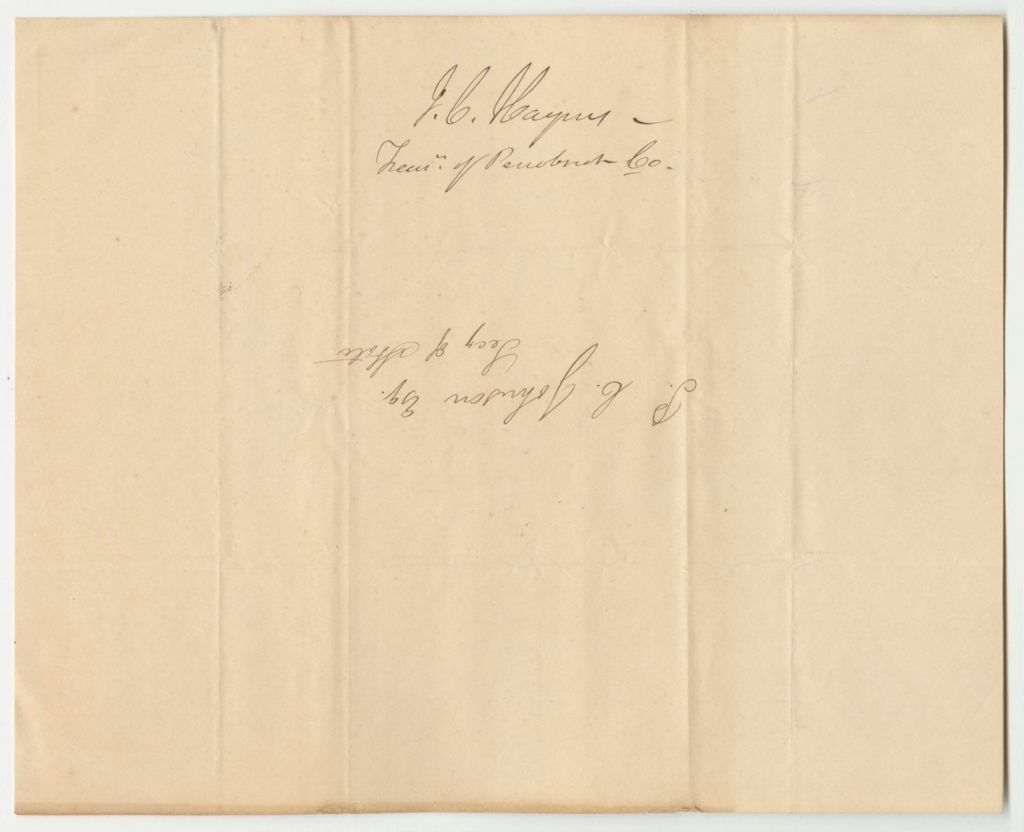 J. C. Haynes –
Treasr. of Penobscot Co.
P. C. Johnson Esq.
Secy of State